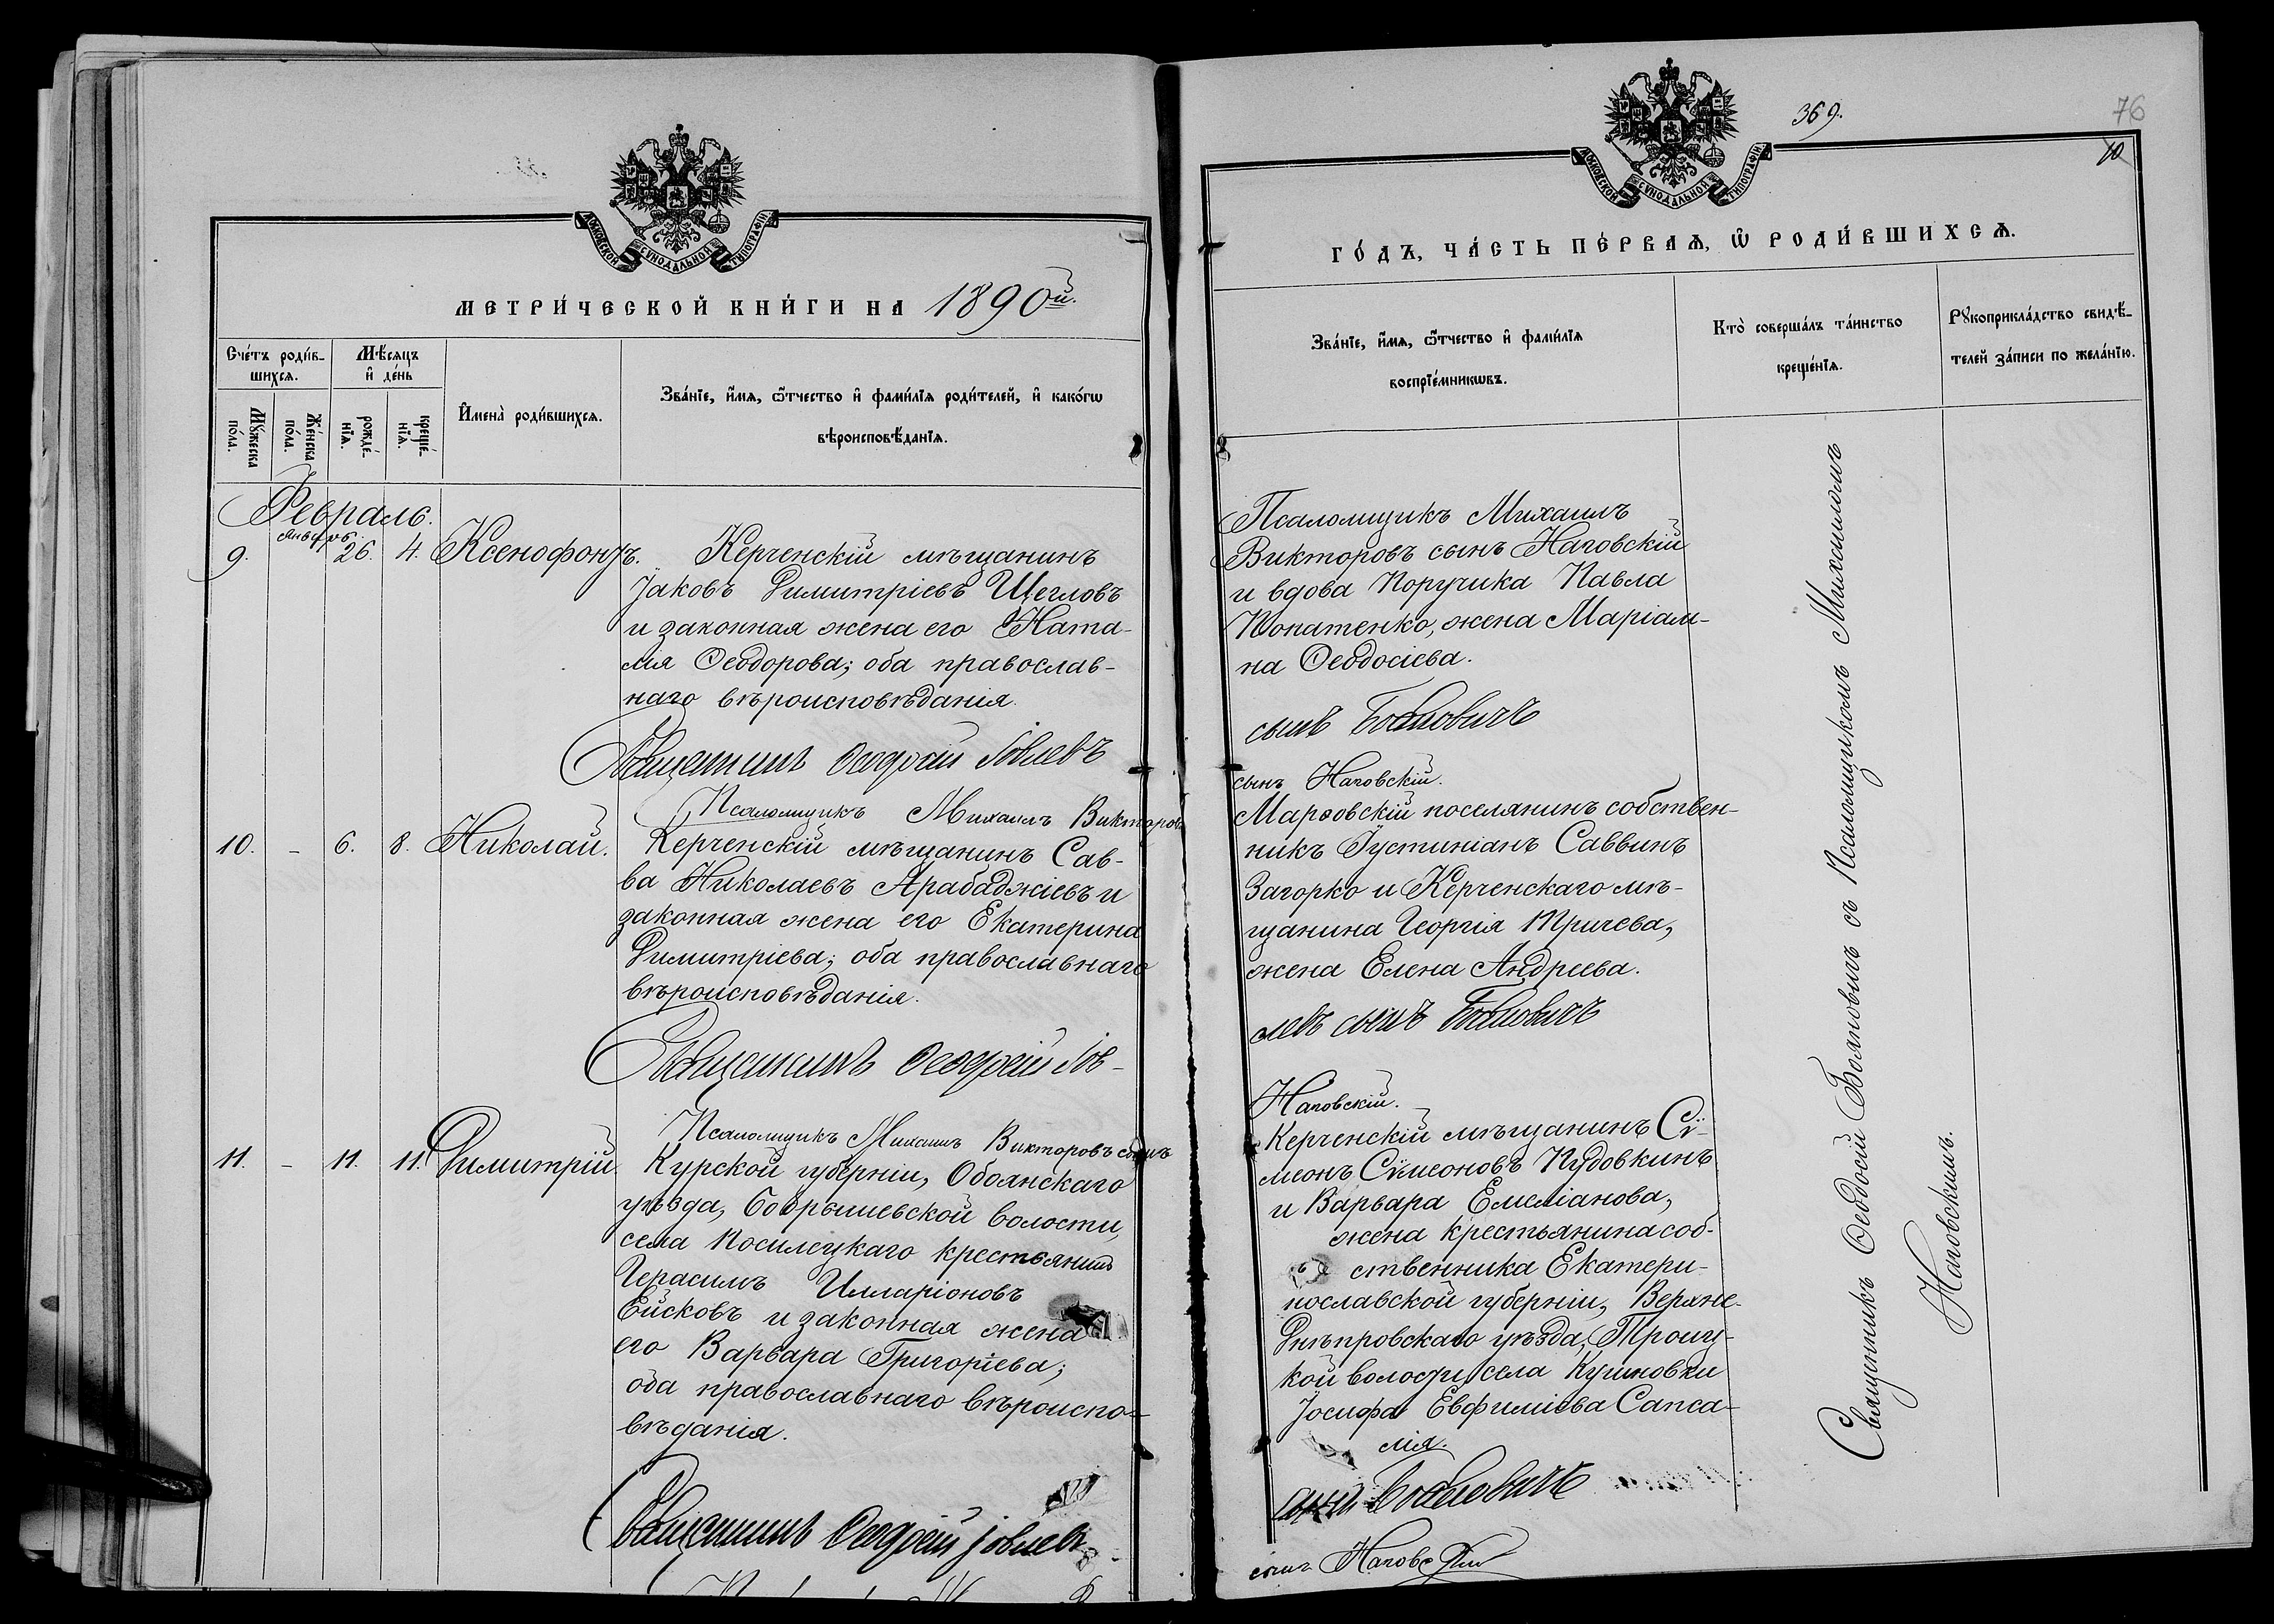 МОСКОВСКОЙ СѴНОДАЛЬНОЙ ТИПОГРАФІИ
МЕТРИ́ЧЕСКОЙ КНИ́ГИ НА 1890й.
Сче́тъ роди́в-
шихсѧ.
Мѣ́сѧцъ
и҆ де́нь
И҆мена̀ роди́вшихсѧ.
Зва́нїе, и҆́мѧ, ѻ҆́тчество и҆ фами́лїѧ роди́телей, и҆ како́гѡ
вѣроисповѣ́данїѧ.
Мꙋ́жеска
по́ла.
Же́нска
по́ла.
рожде́-
нїѧ.
креще́-
нїѧ.
Февраль.
Январь.
9. 26. 4. Ксенофонтъ. Керченскій мѣщанинъ
Іаковъ Димитріевъ Щегловъ
и законная жена его Ната-
лія Ѳеодорова; оба православ-
наго вѣроисповѣданія.
Священникъ Ѳеодосій Іовлевъ
Псаломщикъ Михаилъ Викторовъ
10. - 6. 8. Николай. Керченскій мѣщанинъ Сав-
ва Николаевъ Арабаджіевъ и
законная жена его Екатерина
Димитріева; оба православнаго
вѣроисповѣданія.
Священникъ Ѳеодосій Іов-
Псаломщикъ Михаилъ Викторовъ сынъ
11. - 11. 11. Димитрій Курской губерніи, Обоянскаго
уѣзда, Бобрышевской волости,
села Косилецкаго крестьянинъ
Герасимъ Илларіоновъ
Ейсковъ и законная жена
его Варвара Григоріева;
оба православнаго вѣроиспо-
вѣданія.
Священникъ Ѳеодосій Іовлевъ
369.
76
10
МОСКОВСКОЙ СѴНОДАЛЬНОЙ ТИПОГРАФІИ
ГО́ДЪ, ЧА́СТЬ ПЕ́РВАѦ, Ѡ҆ РОДИ́ВШИХСѦ.
Зва́нїе, и҆́мѧ, ѻ҆́тчество и҆ фами́лїѧ
воспрїе́мникѡвъ.
Кто̀ соверша́лъ та́инство
креще́нїѧ.
Рꙋкоприкла́дство свидѣ́-
телей за́писи по жела́нїю.
Псаломщикъ Михаилъ
Викторовъ сынъ Наговскій
и вдова Поручика Павла
Копатенко, жена Маріам-
на Ѳеодосіева.
сынъ Бояновичъ
сынъ Наговскій.
Марѳовскій поселянинъ собствен-
никъ Іустиніанъ Саввинъ
Загорко и Керченскаго мѣ-
щанина Георгія Тричева,
жена Елена Андреева.
левъ сынъ Бояновичъ
Наговскій.
Керченскій мѣщанинъ Сѵ-
меонъ Сѵмеоновъ Пудовкинъ
и Варвара Емеліанова,
жена крестьянина соб-
ственника Екатери-
нославской губерніи, Верхне-
Днѣпровскаго уѣзда, Троиц-
кой волости, села Кушновки
Іосифа Евфиміева Сапса-
лія.
сынъ Бояновичъ
сынъ Наговскій
Священникъ Ѳеодосій Бояновичъ съ Псаломщикомъ Михаиломъ
Наговскимъ.